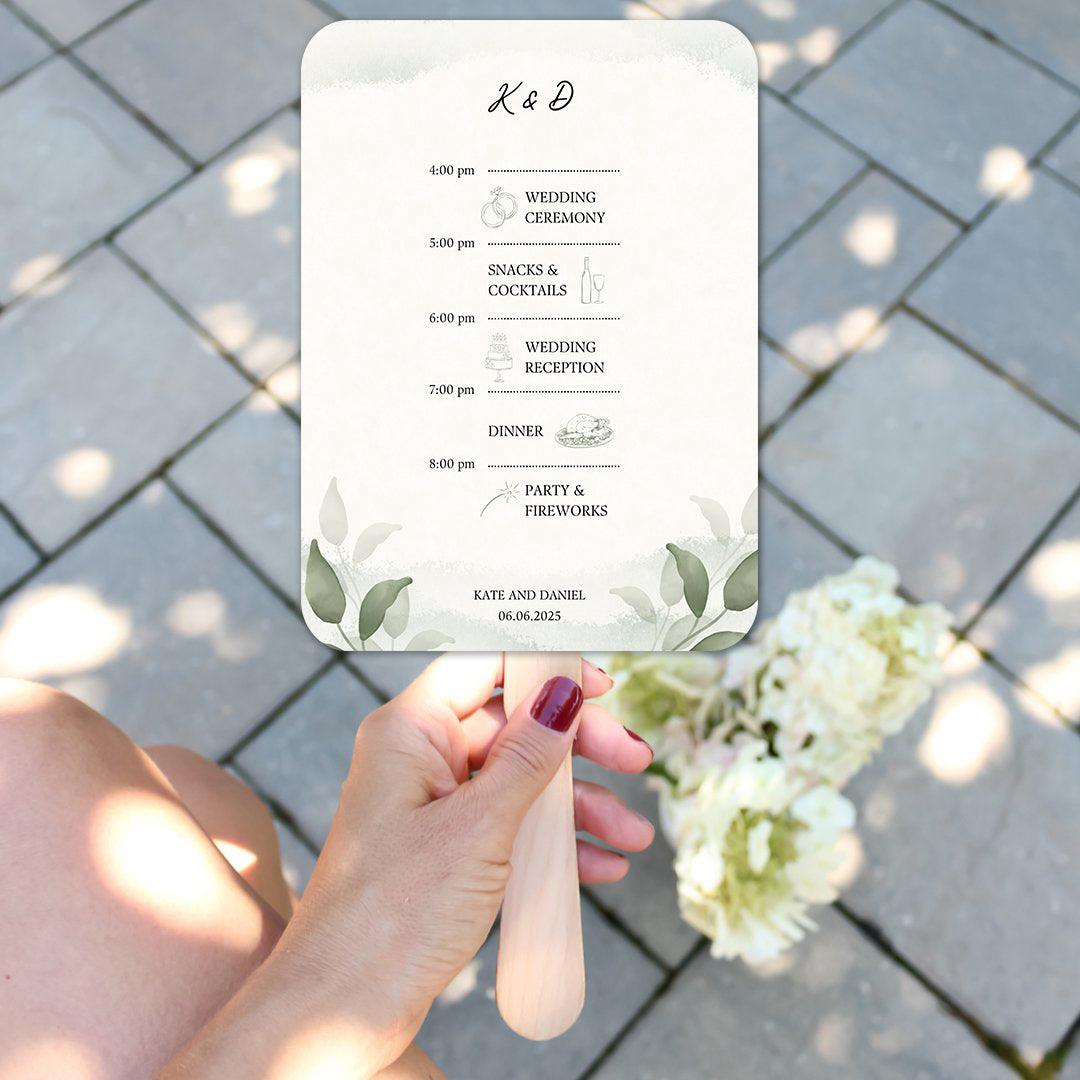 K & D
4:00 pm
WEDDING
CEREMONY
5:00 pm
SNACKS &
COCKTAILS
6:00 pm
WEDDING
RECEPTION
7:00 pm
DINNER
8:00 pm
PARTY &
FIREWORKS
KATE AND DANIEL
06.06.2025